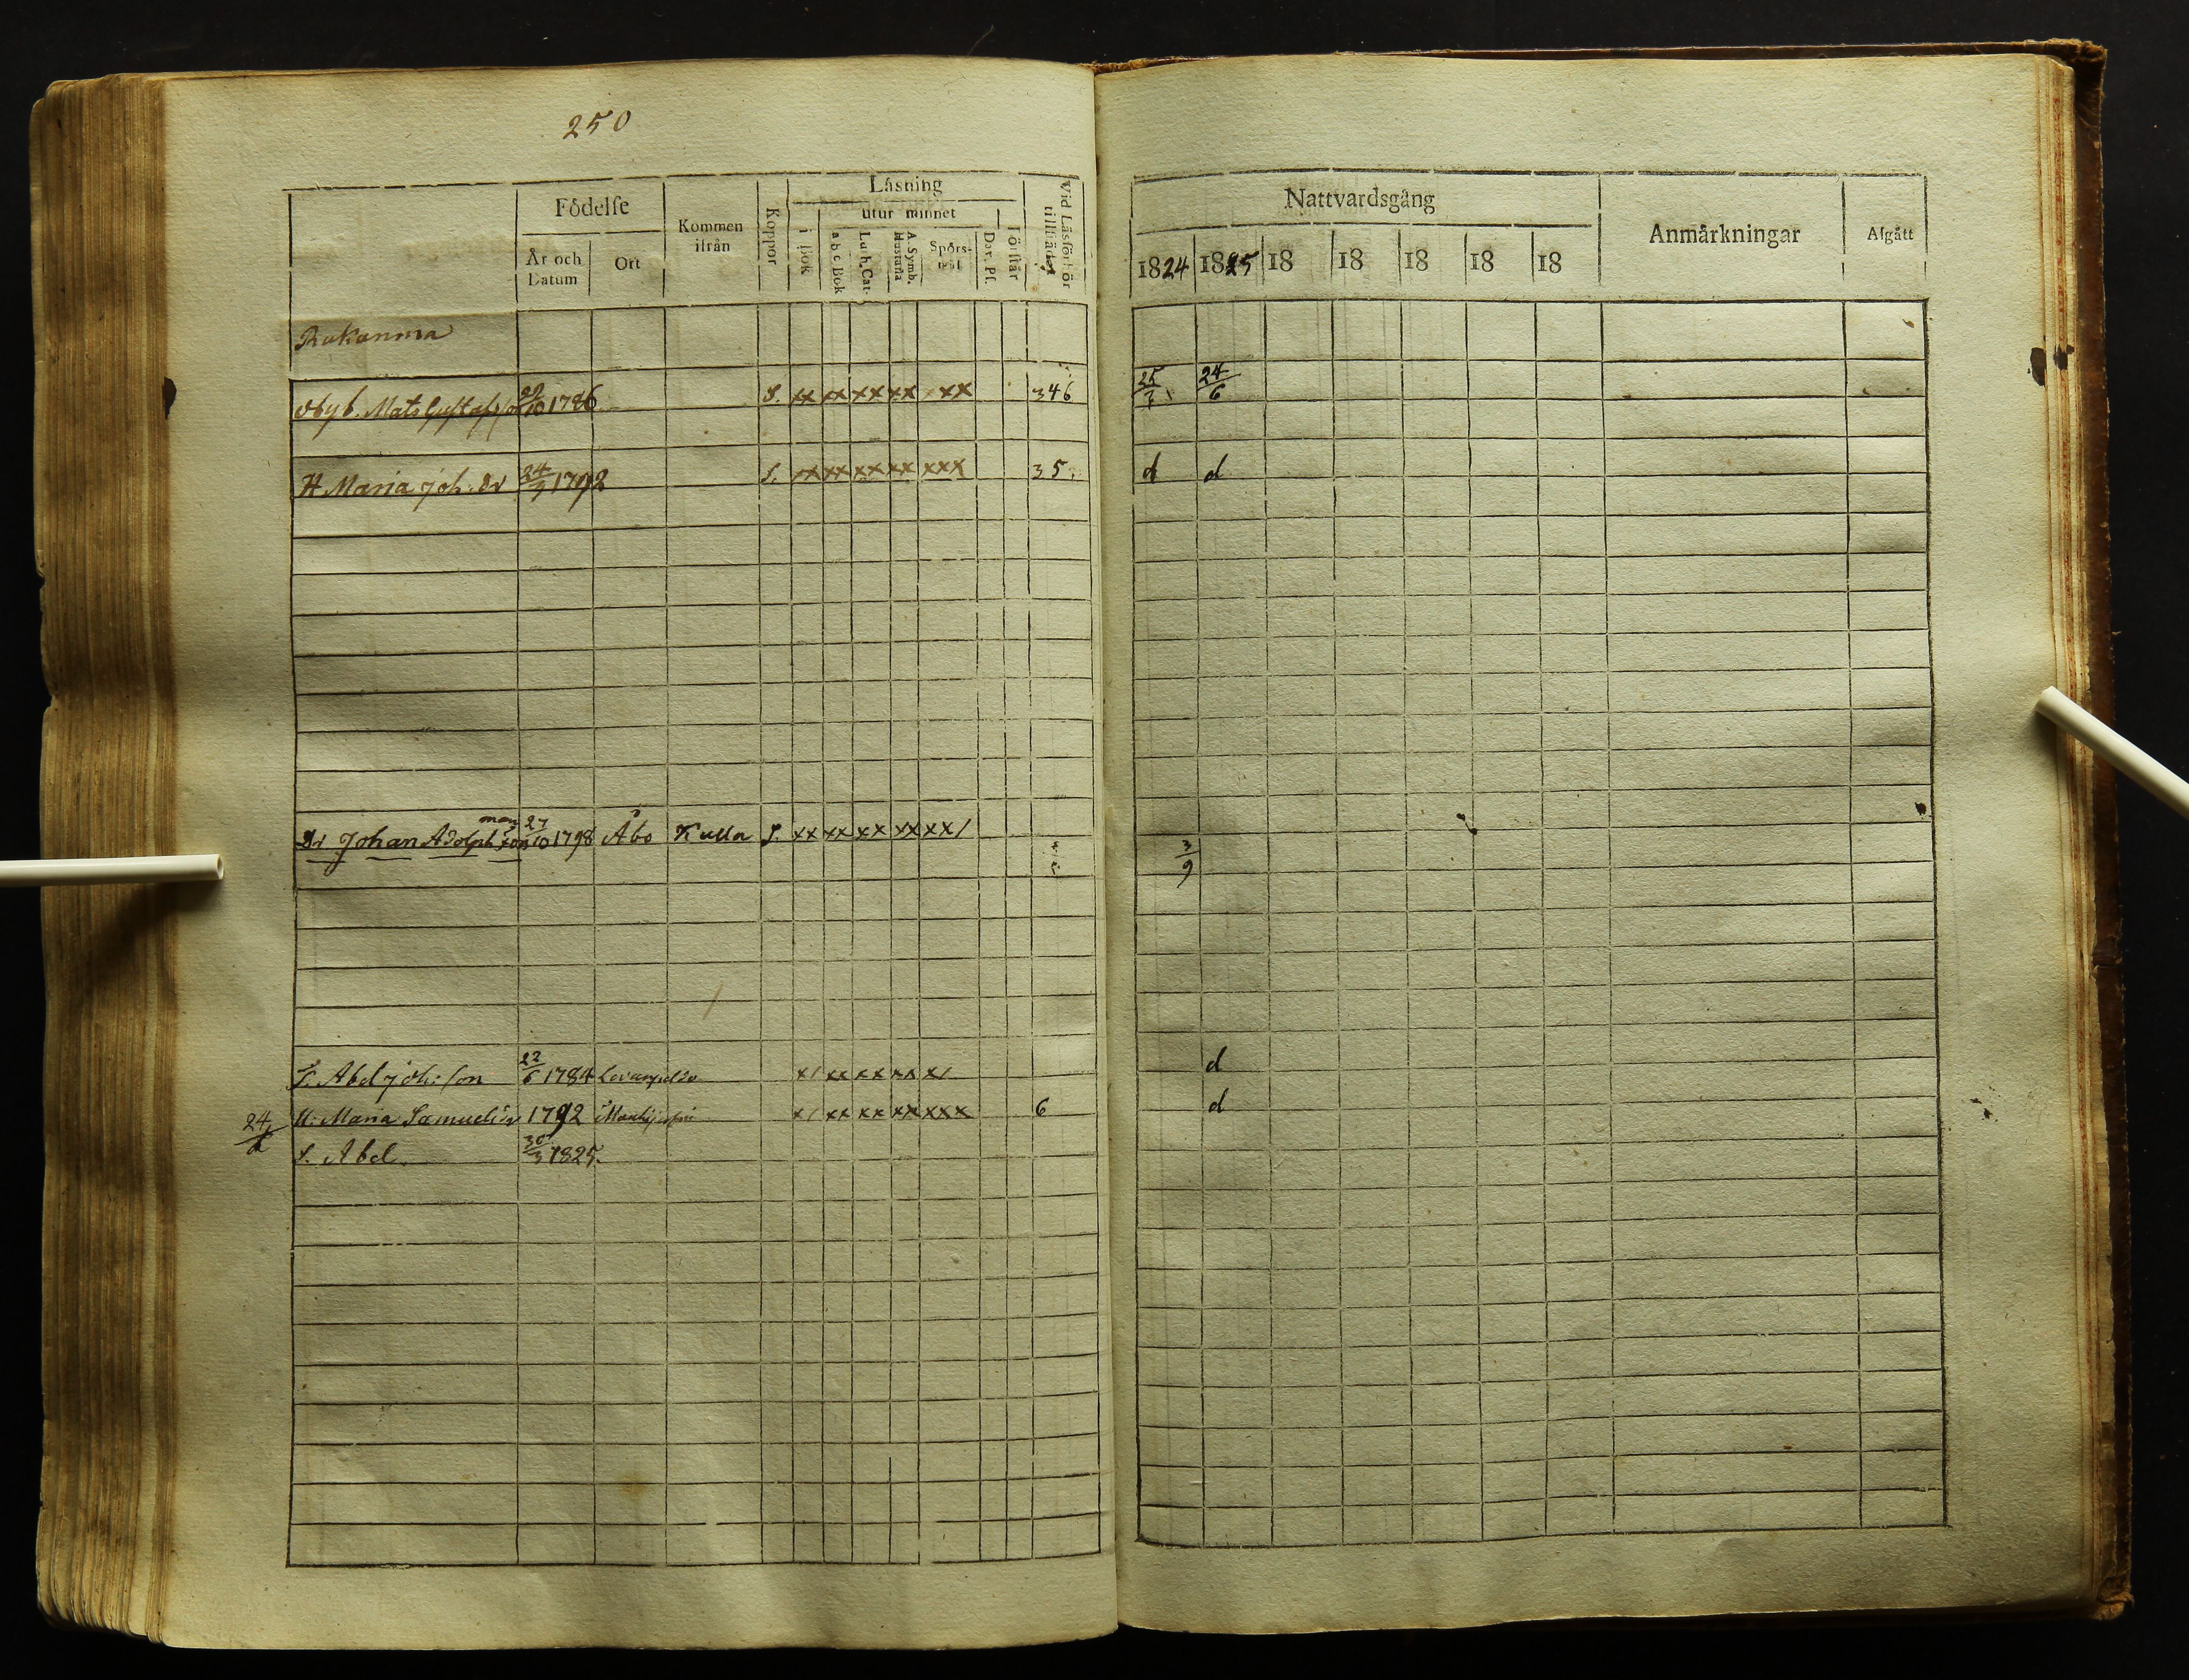 250
Födelse
Kommen ifrån
Koppor
Läsning
utur minnet
År och Datum
Ort
i bok
a b c Bok
Luth. Cat.
A. Symb. Hustafla
Spörsmål
Dav. Ps.
Förstår
Vid Läsförhör tillstädes
Nattvardsgång
Anmärkningar
Afgått
1824 1825 18 18 18 18 18
Mats Gustafsson 10 1786 S. xx xx xx xx xx 346 25/7 24/6
H Maria Joh: dr 24/9 1792 S. xx xx xx xx xxx 35 d d
Dr Johan Adolph son man 27/10 1798 Åbo Kulla S. xx xx xx xx xx/ 3/9
Abel Joh: son 22/6 1784 x/ xx xx xx x/ d
24/6 H: Maria Samuelsdr 1792 x/ xx xx xx xxx 6 d
S. Abel. 30/3 1825.